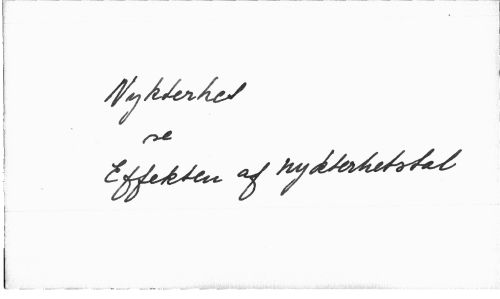 Nykterhet
se
Effekten af nykterhetstal